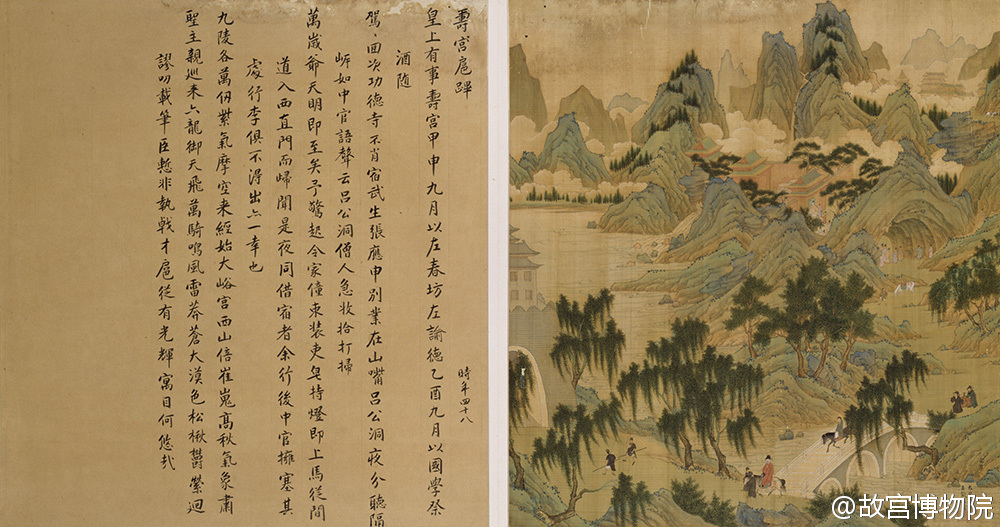 壽宮扈蹕
皇上有事壽宮甲申九月以左春坊左諭德乙酉九月以國學祭
酒隨
時年四十八
駕、回次功德寺不肖宿武生張應申別業在山嘴呂公洞夜分聽隔
㟁如中官語聲云呂公洞僧人急收拾打掃
萬歲爺天明即至矣予驚起令家僮束裝吏皂持燈即上馬從間
道入西直門而歸聞是夜同借宿者余行後中官擁塞其
處行李俱不得出亦一幸也
九陵各萬仞紫氣摩空來經始大峪宮西山倍崔嵬高秋氣象肅
聖主親巡來六龍御天飛萬騎鳴風雷莽蒼大漠色松楸鬱縈迴
謬叨載筆臣慙非執戟才扈從有光輝寓目何悠哉
@故宫博物院